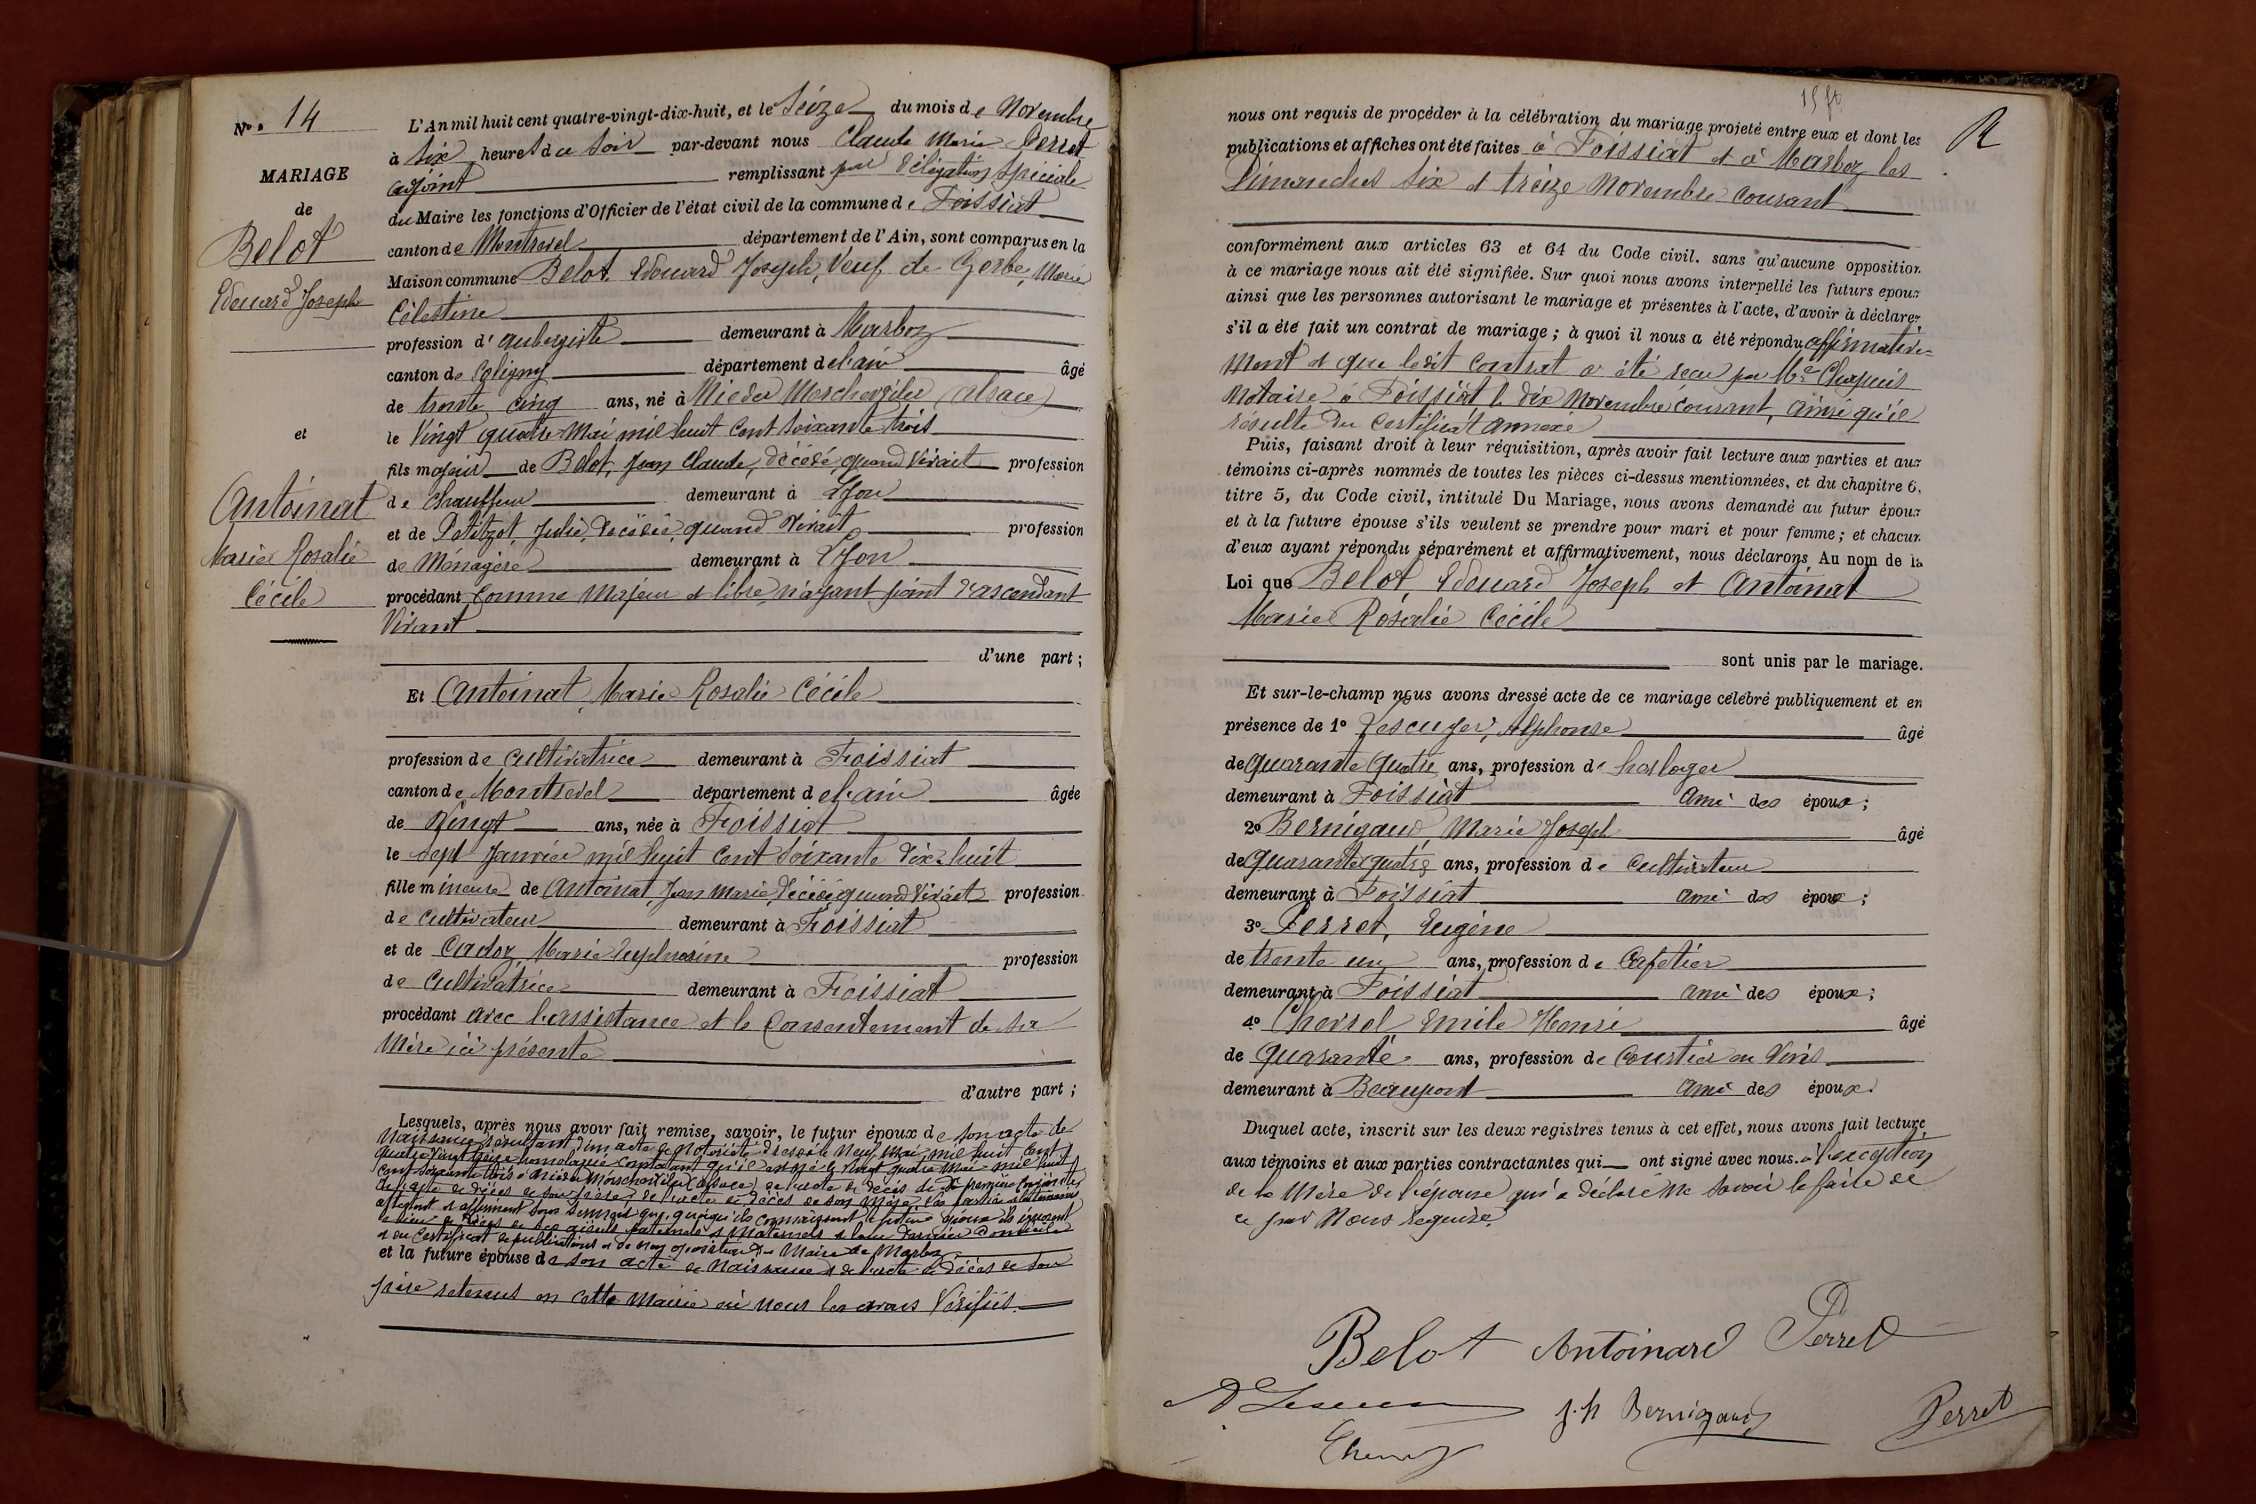 No. 14
MARIAGE
de
Belot
Edouard Joseph
et
Antoinat
Marie Rosalie
Cécile
L'An mil huit cent quatre-vingt-dix-huit, et le Seize du mois de Novembre
à Six heures du Soir par-devant nous Claude Marie Perret
adjoint remplissant par délégation Spéciale
du Maire les fonctions d'Officier de l'état civil de la commune de Foissiat
canton de Montrevel département de l'Ain, sont comparus en la
Maison commune Belot Edouard Joseph, Veuf de Gerbe, Marie
Célestine
profession d'aubergiste demeurant à Marboz
canton de Coligny département de l'ain âgé
de trente cinq ans, né à Nieder Morschwiler (alsace)
le Vingt quatre Mai mil huit Cent Soixante trois
fils majeur de Belot, Jean Claude, décédé, quand Vivait profession
de Chauffeur demeurant à Lyon
et de Petitzot, Julie, décédée, quand Vivait profession
de Ménagère demeurant à Lyon
procédant Comme Majeur et libre, n'ayant point d'ascendant
Vivant
d'une part ;
Et Antoinat, Marie Rosalie Cécile
profession de Cultivatrice demeurant à Foissiat
canton de Montrevel département de l'ain âgée
de Vingt ans, née à Foissiat
le Sept Janvier mil huit Cent Soixante Dix-huit
fille mineure de Antoinat, Jean Marie, Décédé quand Vivait profession
de Cultivateur demeurant à Foissiat
et de Cadoz, Marie Euphrosine profession
de Cultivatrice demeurant à Foissiat
procédant avec l'assistance et le Consentement de sa
Mère ici présente
d'autre part ;
Lesquels, après nous avoir fait remise, savoir, le futur époux de son acte de
Naissance résultant d'un acte de Notoriété dressé le Neuf Mai mil huit Cent
quatre Vingt treize homologué Constatant qu'il est né le Vingt quatre Mai mil huit
Cent Soixante trois à Nieder Morschwiler (alsace) de l'acte de décès de sa première Conjointe
de l'acte de décès de son père, de l'acte de décès de son mère, les parties et les témoins
attestent et affirment sous serment que, quoiqu'ils connaissent le futur époux ils ignorent
le lieu de décès de ses aïeuls paternels et maternels et leur dernier domicile
et du Certificat de publications et de Non opposition du Maire de Marboz
et la future épouse de son acte de Naissance et de l'acte de Décès de son
père retenus en cette Mairie où nous les avons Vérifiés.
R
nous ont requis de procéder à la célébration du mariage projeté entre eux et dont les
publications et affiches ont été faites à Foissiat et à Marboz les
Dimanches Six et treize Novembre courant
conformément aux articles 63 et 64 du Code civil. sans qu'aucune opposition
à ce mariage nous ait été signifiée. Sur quoi nous avons interpellé les futurs époux
ainsi que les personnes autorisant le mariage et présentes à l'acte, d'avoir à déclarer
s'il a été fait un contrat de mariage ; à quoi il nous a été répondu affirmative-
ment et que ledit Contrat a été reçu par Me Chapuis
Notaire à Foissiat le dix Novembre courant, ainsi qu'il
résulte du Certificat annexé
Puis, faisant droit à leur réquisition, après avoir fait lecture aux parties et aux
témoins ci-après nommés de toutes les pièces ci-dessus mentionnées, et du chapitre 6,
titre 5, du Code civil, intitulé Du Mariage, nous avons demandé au futur époux
et à la future épouse s'ils veulent se prendre pour mari et pour femme ; et chacun
d'eux ayant répondu séparément et affirmativement, nous déclarons Au nom de la
Loi que Belot Edouard Joseph et Antoinat
Marie Rosalie Cécile
sont unis par le mariage.
Et sur-le-champ nous avons dressé acte de ce mariage célébré publiquement et en
présence de 1° Lescuyer, Alphonse âgé
de Quarante Quatre ans, profession de horloger
demeurant à Foissiat ami des époux ;
2° Bernigaud Marie Joseph âgé
de Quarante quatre ans, profession de Cultivateur
demeurant à Foissiat ami des époux ;
3° Perret, Eugène
de trente un ans, profession de Cafetier
demeurant à Foissiat ami des époux ;
4° Chevrel Emile Henri âgé
de Quarante ans, profession de Courtier en Vins
demeurant à Beaupont ami des époux.
Duquel acte, inscrit sur les deux registres tenus à cet effet, nous avons fait lecture
aux témoins et aux parties contractantes qui ont signé avec nous. à l'exception
de la Mère de l'épouse qui a déclaré ne Savoir le faire de
ce par Nous requise.
Belot Antoinard Perret
J. M Bernigaud Perret